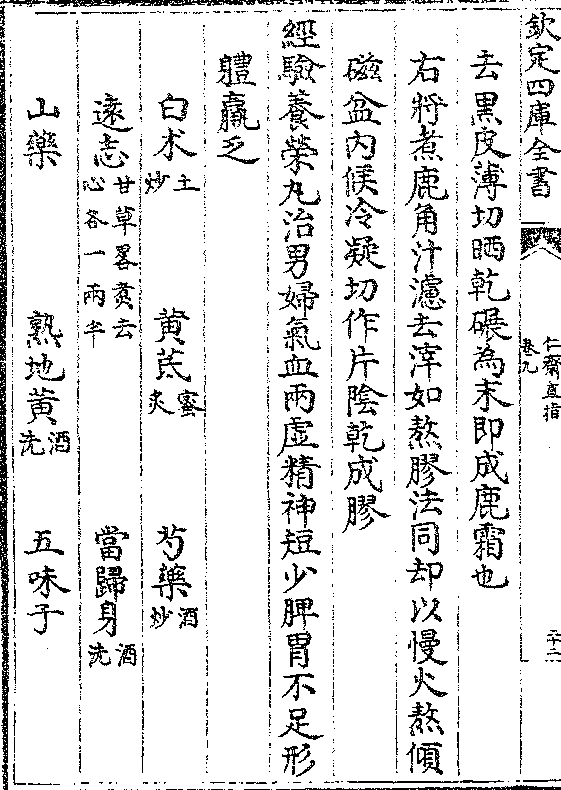 欽定四庫全書
仁齋直指
卷九
二十二
去黑皮薄切晒乾碾為末即成鹿霜也
右將煮鹿角汁濾去滓如熬膠法同却以慢火熬傾
磁盆內候冷凝切作片陰乾成膠
經驗養榮丸治男婦氣血兩虛精神短少脾胃不足形
體羸乏
白朮土炒 黄芪蜜炙 芍藥酒炒
遠志甘草畧煮去心各一兩半 當歸身酒洗
山藥 熟地黄酒洗 五味子